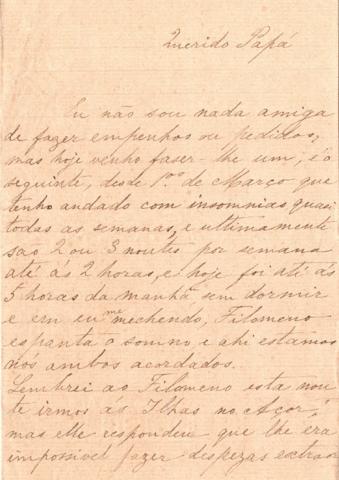 Querido Papá
Eu não sou nada amiga
de fazer empenhos ou pedidos,
mas hoje venho faser-lhe um, é o
seguinte, desde 1º de Março que
tenho andado com insomnias quasi
todas as semanas, e ultimamente
são 2 ou 3 noutes por semana
até ás 2 horas, e hoje foi até ás
5 horas da manhã sem dormir
e em eu me mechendo, Filomeno
espanta o somno e ahi estamos
nós ambos acordados.
Lembrei ao Filomeno esta nou
te irmos ás Ilhas no Açor,
mas elle respondeu que lhe era
impossivel fazer despezas extraor